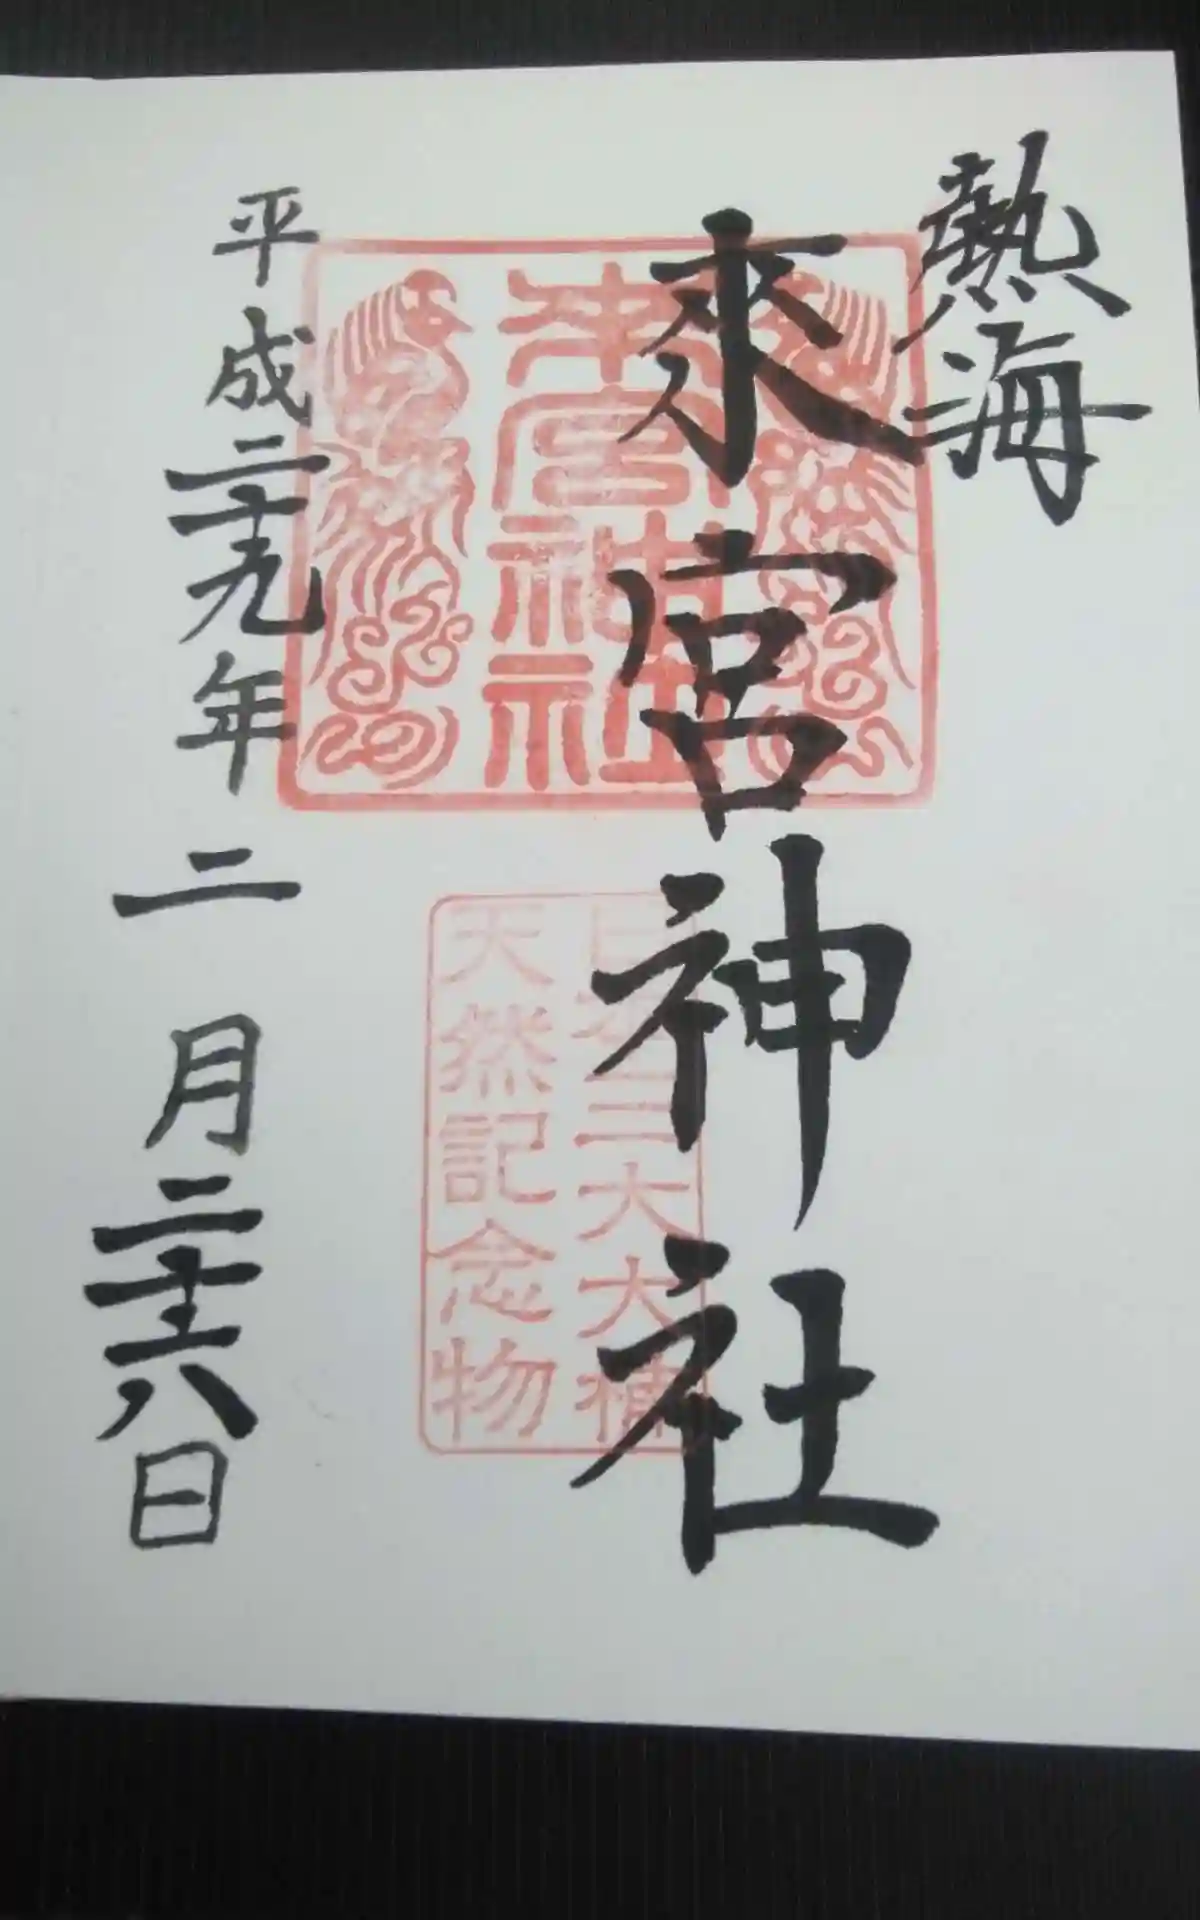 熱海
來宮神社
來宮神社
日本三大大楠
天然記念物
平成二十九年二月二十六日